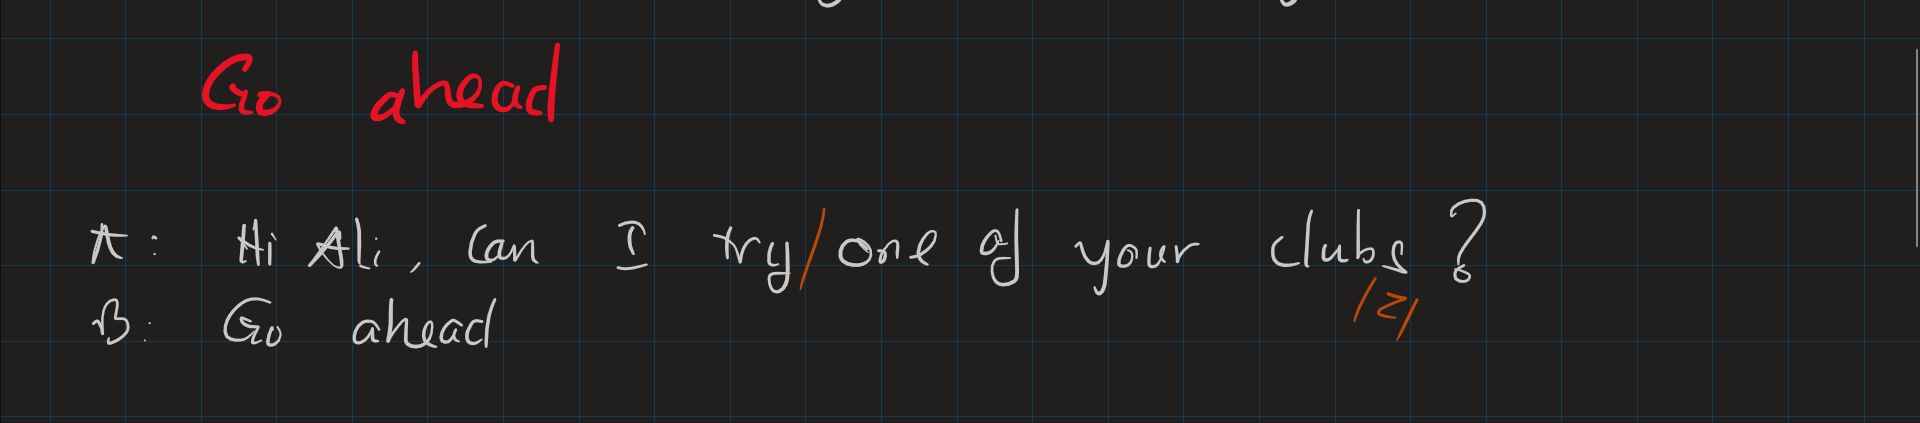 Go ahead
A: Hi Ali, Can I try/one of your clubs?
/z/
B: Go ahead